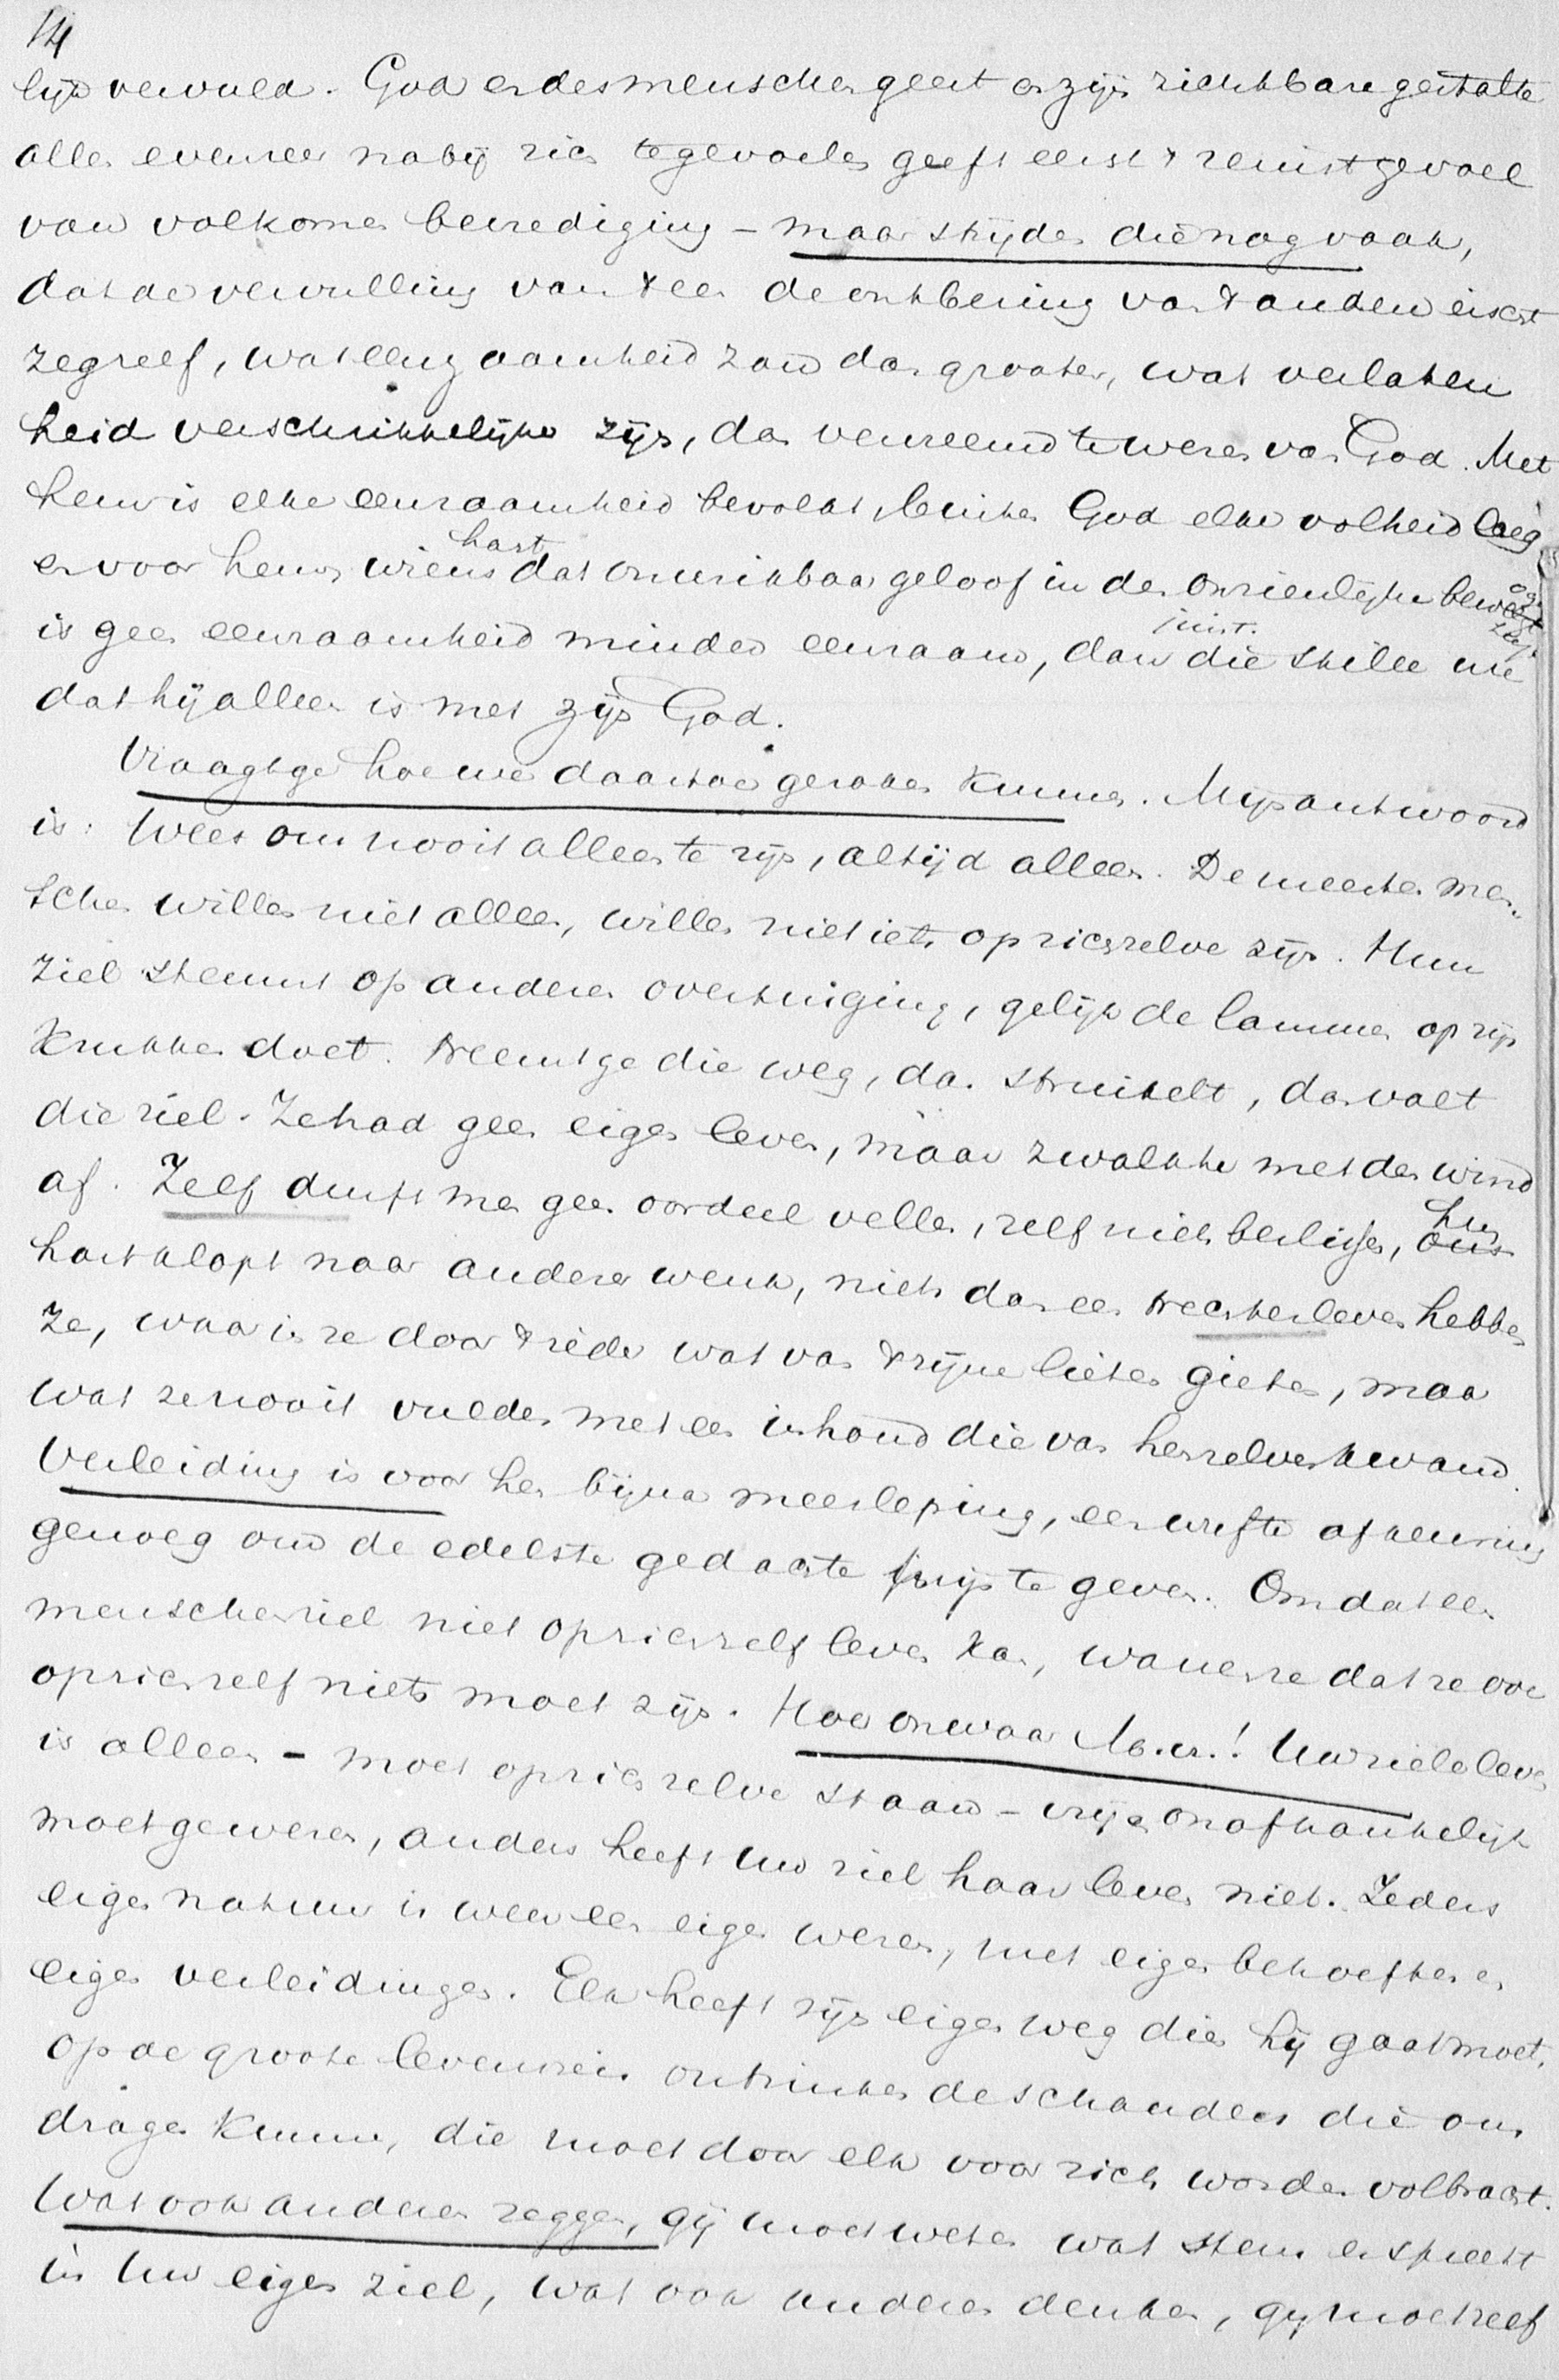 14
lijk vervuld. God en des menschen geest en zijn zichtbare gestalte
alle evenzeer nabij zich te gevoelen geeft eerst 't reinst gevoel
van volkomen bevrediging – maar strijden die nog vaak,
dat de vervulling van 't een de ontbering van 't andere eischt
zeg zelf, wat eenzaamheid zou dan grooter, wat verlaten
heid verschrikkelijker zijn, dan vervreemd te wezen van God. Met
hem is elke eenzaamheid bevolkt, buiten God elke volheid leeg
en voor hem, wiens hart dat onwrikbaar geloof in den Onzienlijke
is geen eenzaamheid minder eenzaam, dan juist die stille
dat hij alleen is met zijn God.
Vraagt ge hoe we daartoe geraken kunnen. Mijn antwoord
is: Wees om nooit alleen te zijn, altijd alleen. De meeste men-
schen willen niet alleen, willen niet iets op zichzelve zijn. Hun
ziel steunt op anderer overtuiging, gelijk de lamme op zijn
krukken doet. Neemt ge die weg, dan struikelt, dan valt
die ziel. Ze had geen eigen leven, maar zwalkte met den wind
af. Zelf durft men geen oordeel vellen, zelf niet beslissen, hun
hart klopt naar anderer wenk, niets dan een trechterleven hebben
ze, waar in ze door 't ieder wat van 't zijne lieten gieten, maar
wat ze nooit vulden met een inhoud die van henzelven kwam.
Verleiding is voor hen bijna meesleping, een wufte afkeuring
genoeg om de edelste gedachte prijs te geven. Omdat een
menschenziel niet op zichzelf leven kan, wanen ze dat ze ook
op zichzelf niets moet zijn. Hoe onwaar M.H.! Uw zieleleven
is alleen – moet op zichzelve staan – vrij en onafhankelijk
moet ge wezen, anders heeft uw ziel haar leven niet. Ieders
eigen natuur is weer een eigen wezen, met eigen behoeften en
eigen verleidingen. Elk heeft zijn eigen weg dien hij gaat moet,
op de groote levensreis ontzinken de schouders die ons
dragen kunnen, die moet door elk voor zich worden volbracht.
Wat ook anderen zeggen, gij moet weten wat stem er spreekt
in Uw eigen ziel, wat ook anderen denken, gij moet zelf